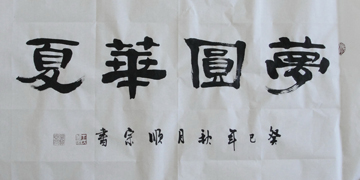 夢圓華夏
癸巳年秋月順宗書